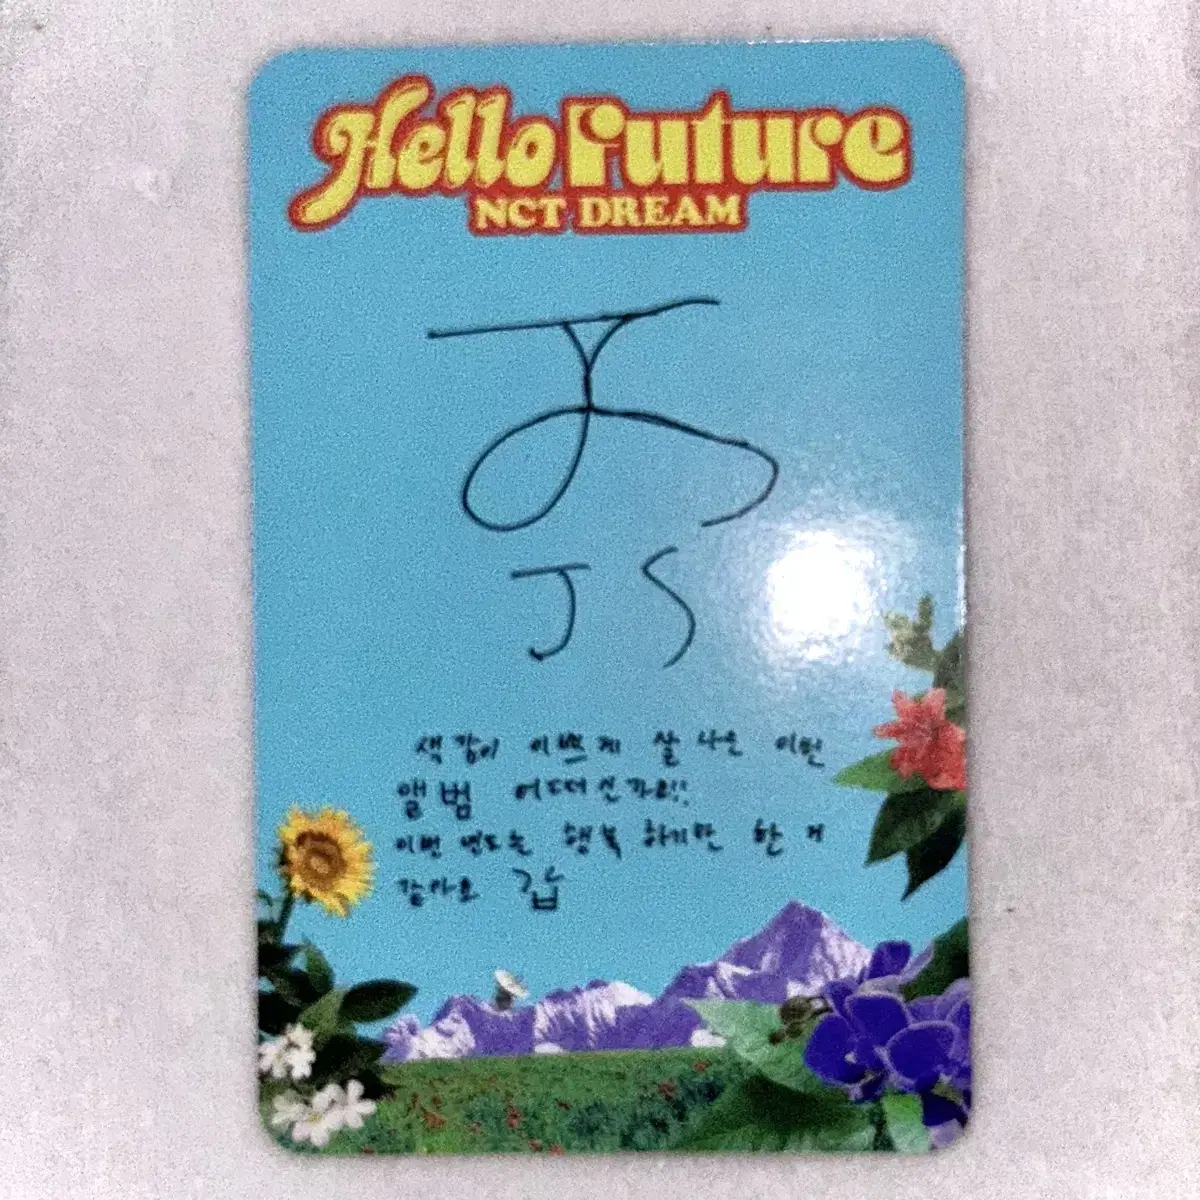 Hello Future
NCT DREAM
J S
색감이 이쁘게 잘 나온 이번
앨범 어떠신가요!!
이번 앤도는 행복 하기만 한 거
같아요 굽